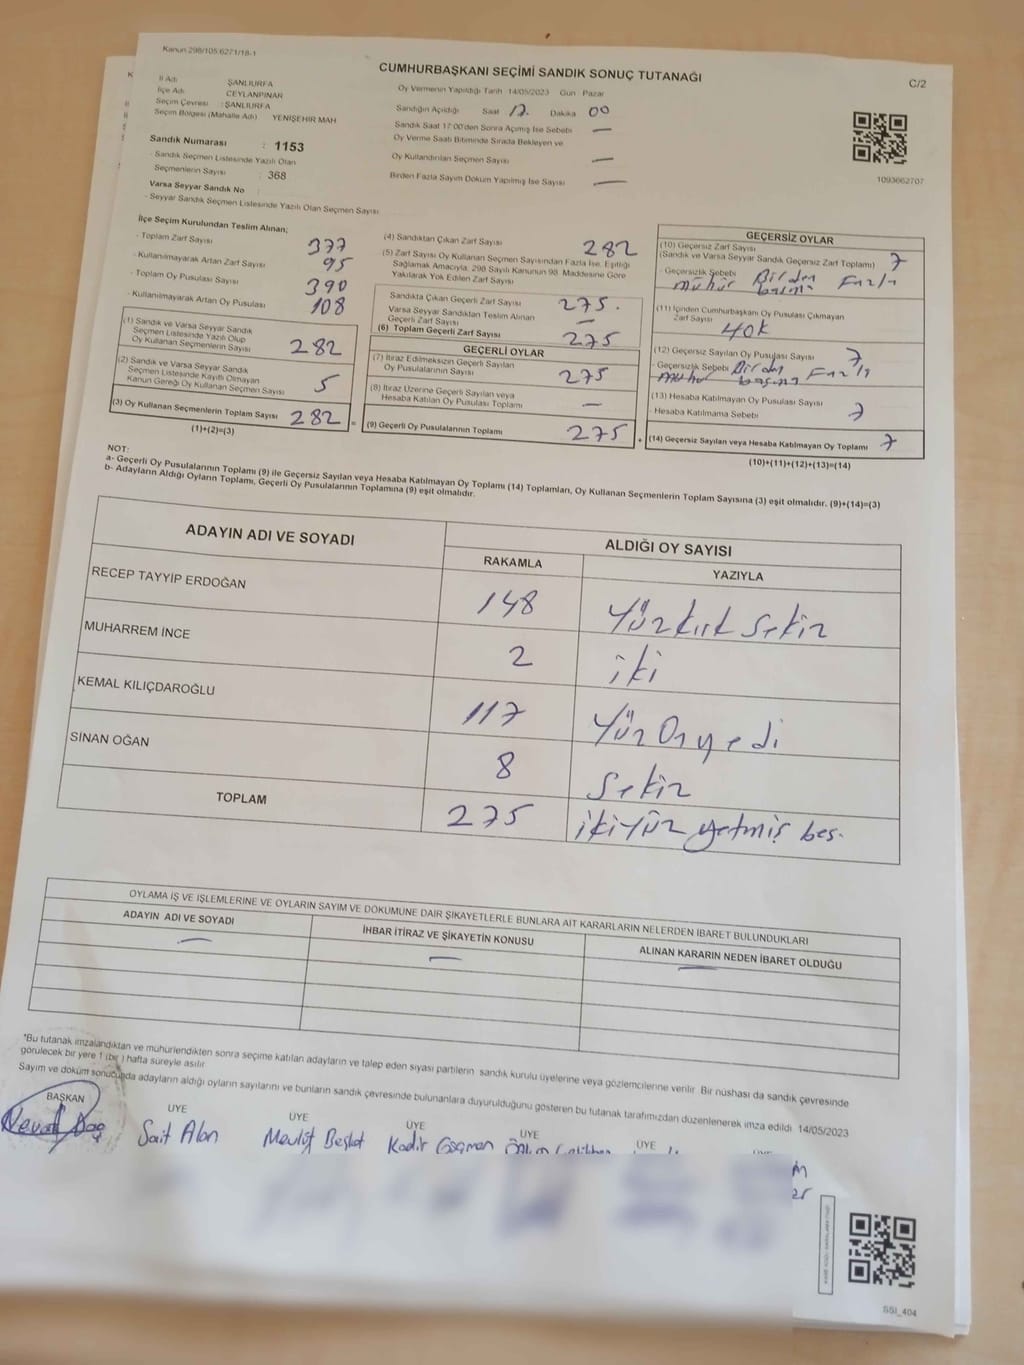 Kanun 298/105.6271/18-1
CUMHURBAŞKANI SEÇİMİ SANDIK SONUÇ TUTANAĞI
C/2
İl Adı : ŞANLIURFA
İlçe Adı : CEYLANPINAR
Seçim Çevresi : ŞANLIURFA
Seçim Bölgesi (Mahalle Adı) YENİŞEHİR MAH
Oy Vermenin Yapıldığı Tarih 14/05/2023 Gün Pazar
Sandığın Açıldığı Saat 17. Dakika 00
Sandık Saat 17:00'den Sonra Açımış İse Sebebi —
Oy Verme Saati Bitiminde Sırada Bekleyen ve
Oy Kullandırılan Seçmen Sayısı —
Birden Fazla Sayım Döküm Yapılmış İse Sayısı —
1093662707
Sandık Numarası : 1153
- Sandık Seçmen Listesinde Yazılı Olan
Seçmenlerin Sayısı : 368
Varsa Seyyar Sandık No :
- Seyyar Sandık Seçmen Listesinde Yazılı Olan Seçmen Sayısı
İlçe Seçim Kurulundan Teslim Alınan;
- Toplam Zarf Sayısı 377
- Kullanılmayarak Artan Zarf Sayısı 95
- Toplam Oy Pusulası Sayısı 390
- Kullanılmayarak Artan Oy Pusulası 108
(1) Sandık ve Varsa Seyyar Sandık
Seçmen Listesinde Yazılı Olup
Oy Kullanan Seçmenlerin Sayısı 282
(2) Sandık ve Varsa Seyyar Sandık
Seçmen Listesinde Kayıtlı Olmayan
Kanun Gereği Oy Kullanan Seçmen Sayısı 5
(3) Oy Kullanan Seçmenlerin Toplam Sayısı 282
(1)+(2)=(3)
(4) Sandıktan Çıkan Zarf Sayısı 282
(5) Zarf Sayısı Oy Kullanan Seçmen Sayısından Fazla İse, Eşitliği
Sağlamak Amacıyla, 298 Sayılı Kanunun 98. Maddesine Göre
Yakılarak Yok Edilen Zarf Sayısı
Sandıkta Çıkan Geçerli Zarf Sayısı 275.
Varsa Seyyar Sandıktan Teslim Alınan
Geçerli Zarf Sayısı —
(6) Toplam Geçerli Zarf Sayısı 275
GEÇERLİ OYLAR
(7) İtiraz Edilmeksizin Geçerli Sayılan
Oy Pusulasının Sayısı 275
(8) İtiraz Üzerine Geçerli Sayılan veya
Hesaba Katılan Oy Pusulası Toplamı —
= (9) Geçerli Oy Pusulalarının Toplamı 275
GEÇERSİZ OYLAR
(10) Geçersiz Zarf Sayısı
(Sandık ve Varsa Seyyar Sandık Geçersiz Zarf Toplamı) 7
- Geçersizlik Sebebi Birden Fazla
mühür basma
(11) İçinden Cumhurbaşkanı Oy Pusulası Çıkmayan
Zarf Sayısı YOK
(12) Geçersiz Sayılan Oy Pusulası Sayısı 7
- Geçersizlik Sebebi Birden Fazla
mühür basma
(13) Hesaba Katılmayan Oy Pusulası Sayısı
- Hesaba Katılmama Sebebi 7
+ (14) Geçersiz Sayılan veya Hesaba Katılmayan Oy Toplamı 7
(10)+(11)+(12)+(13)=(14)
NOT:
a- Geçerli Oy Pusulalarının Toplamı (9) ile Geçersiz Sayılan veya Hesaba Katılmayan Oy Toplamı (14) Toplamları, Oy Kullanan Seçmenlerin Toplam Sayısına (3) eşit olmalıdır. (9)+(14)=(3)
b- Adayların Aldığı Oyların Toplamı, Geçerli Oy Pusulalarının Toplamına (9) eşit olmalıdır.
ADAYIN ADI VE SOYADI
ALDIĞI OY SAYISI
RAKAMLA YAZIYLA
RECEP TAYYİP ERDOĞAN 148 Yüzkırk sekiz
MUHARREM İNCE 2 iki
KEMAL KILIÇDAROĞLU 117 Yüz On yedi
SİNAN OĞAN 8 Sekiz
TOPLAM 275 ikiYüz yetmiş beş.
OYLAMA İŞ VE İŞLEMLERİNE VE OYLARIN SAYIM VE DÖKÜMÜNE DAİR ŞİKAYETLERLE BUNLARA AİT KARARLARIN NELERDEN İBARET BULUNDUKLARI
ADAYIN ADI VE SOYADI İHBAR İTİRAZ VE ŞİKAYETİN KONUSU ALINAN KARARIN NEDEN İBARET OLDUĞU
— — —
*Bu tutanak imzalandıktan ve mühürlendikten sonra seçime katılan adayların ve talep eden siyasi partilerin sandık kurulu üyelerine veya gözlemcilerine verilir. Bir nüshası da sandık çevresinde
görülecek bir yere 1 (bir ) hafta süreyle asılır.
Sayım ve döküm sonucunda adayların aldığı oyların sayılarını ve bunların sandık çevresinde bulunanlara duyurulduğunu gösteren bu tutanak tarafımızdan düzenlenerek imza edildi. 14/05/2023
BAŞKAN ÜYE ÜYE ÜYE ÜYE ÜYE
Sait Alan Mevlüt Beşkat Kadir Göçmen
SSI_404